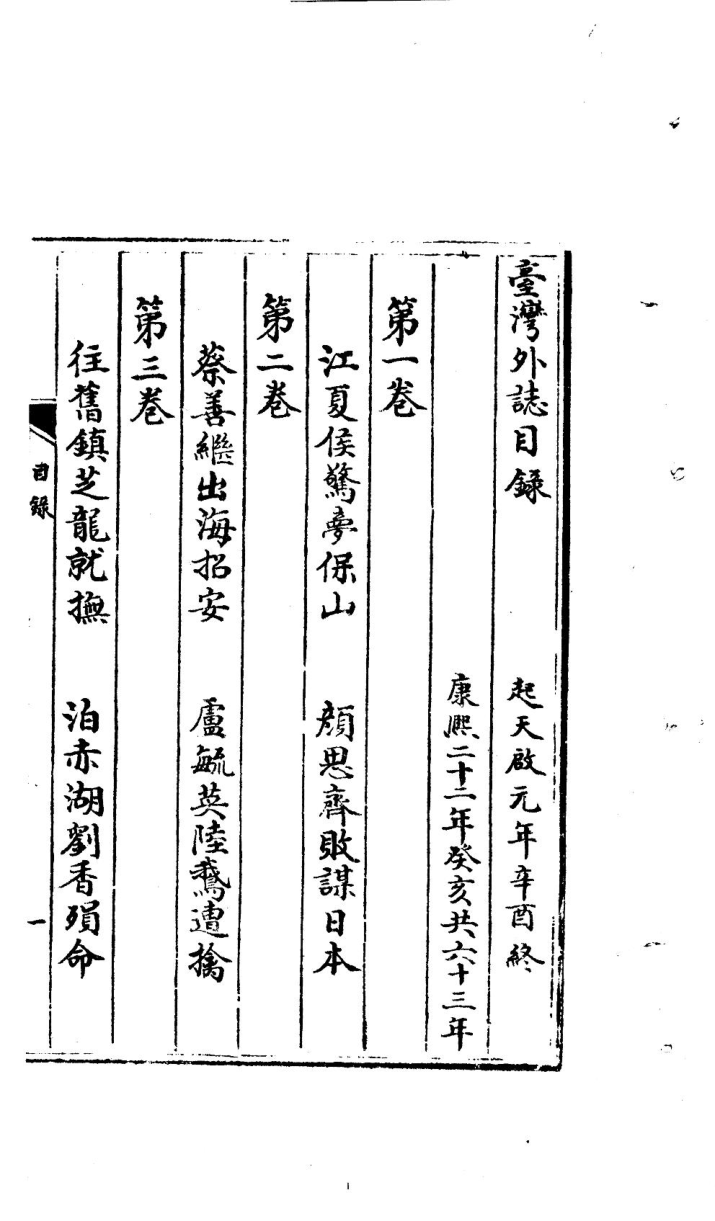 臺灣外誌目錄　起天啟元年辛酉終
康熙二十二年癸亥共六十三年
第一卷
江夏侯驚夢保山　顏思齊敗謀日本
第二卷
蔡善繼出海招安　盧毓英陸鵞遭擒
第三卷
往舊鎮芝龍就撫　泊赤湖劉香殞命
目錄　一